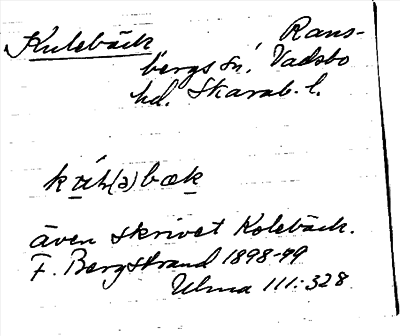 Kulebäck Rans-
bergs sn. Vadsbo
hd. Skarab. l.
även skrivet Kolebäck.
F. Bergstrand 1898-99
Ulma 111:328